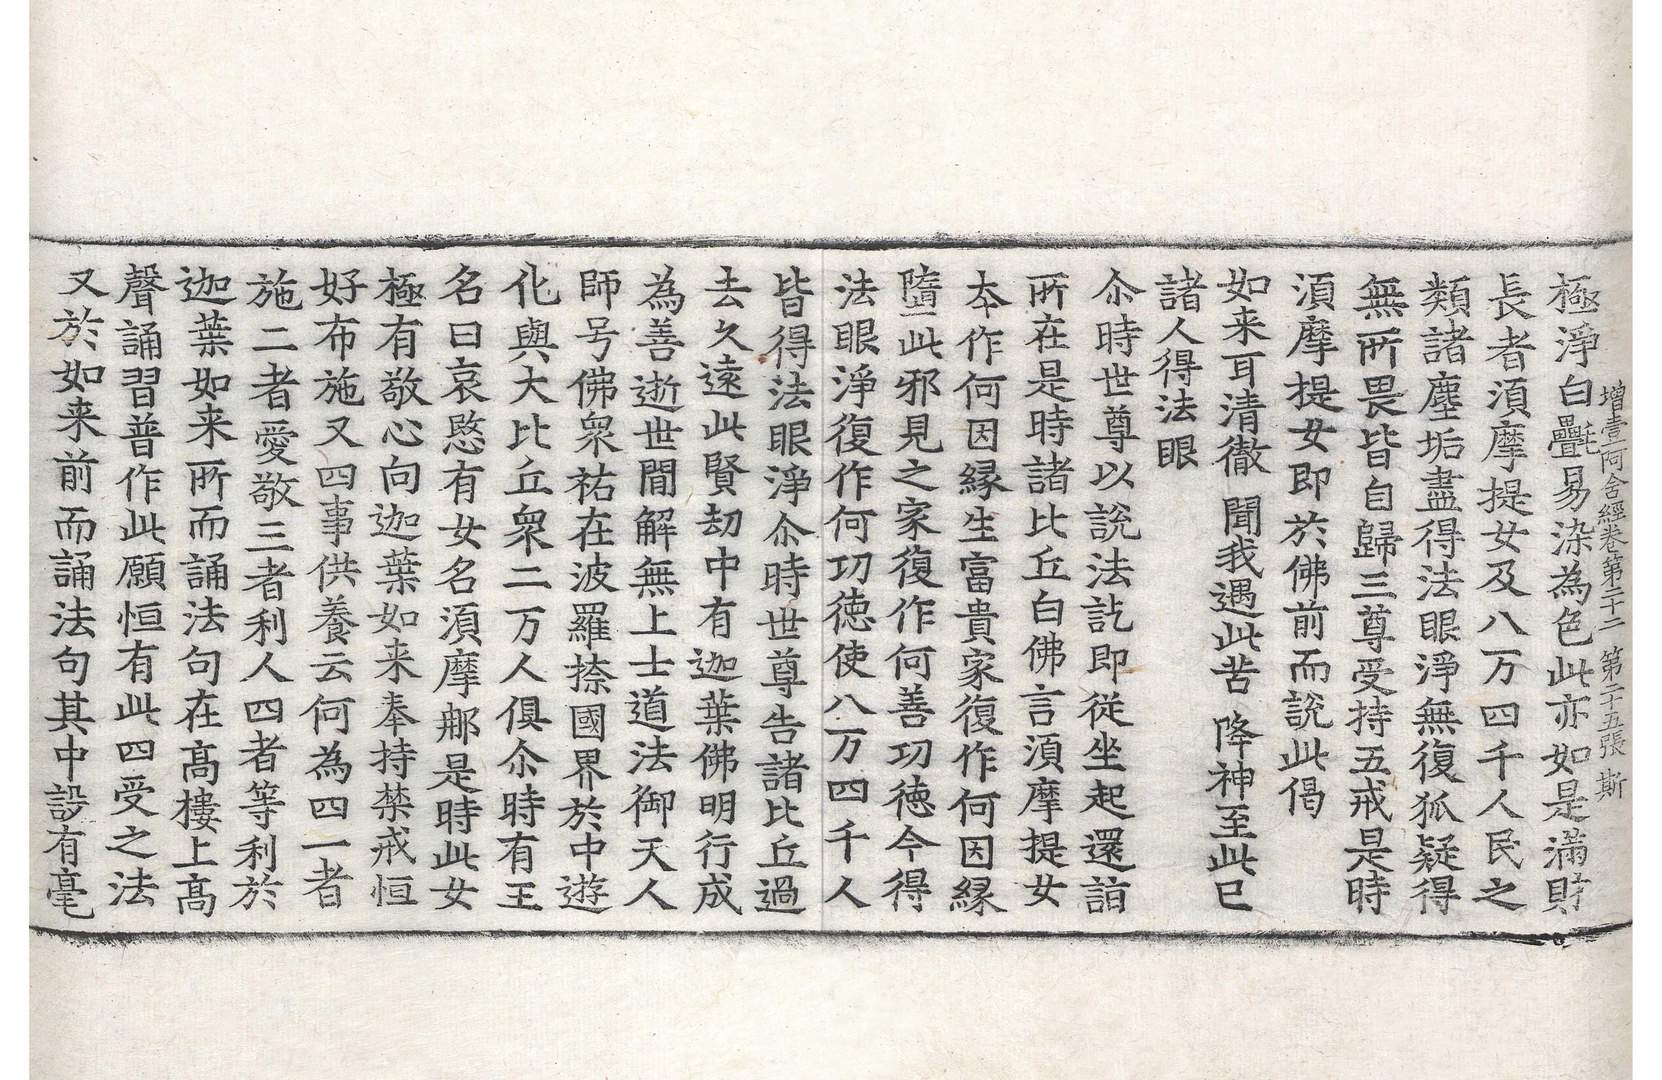 增壹阿含經卷第二十二 第二十五張 斯
極淨白㲲易染為色此亦如是滿財
長者湏摩提女及八万四千人民之
類諸塵垢盡得法眼淨無復狐疑得
無所畏皆自歸三尊受持五戒是時
湏摩提女即於佛前而說此偈
如来耳清徹 聞我遇此苦 降神至此已
諸人得法眼
尒時世尊以說法訖即從坐起還詣
所在是時諸比丘白佛言湏摩提女
夲作何因縁生富貴家復作何因縁
墮此邪見之家復作何善功徳今得
法眼淨復作何功徳使八万四千人
皆得法眼淨尒時世尊告諸比丘過
去久遠此賢劫中有迦葉佛明行成
為善逝世間解無上士道法御天人
師号佛衆祐在波羅㮈國界於中遊
化與大比丘衆二万人俱尒時有王
名曰哀愍有女名湏摩那是時此女
極有敬心向迦葉如来奉持禁戒恒
好布施又四事供養云何為四一者
施二者愛敬三者利人四者等利於
迦葉如来所而誦法句在高樓上高
聲誦習普作此願恒有此四受之法
又於如来前而誦法句其中設有毫